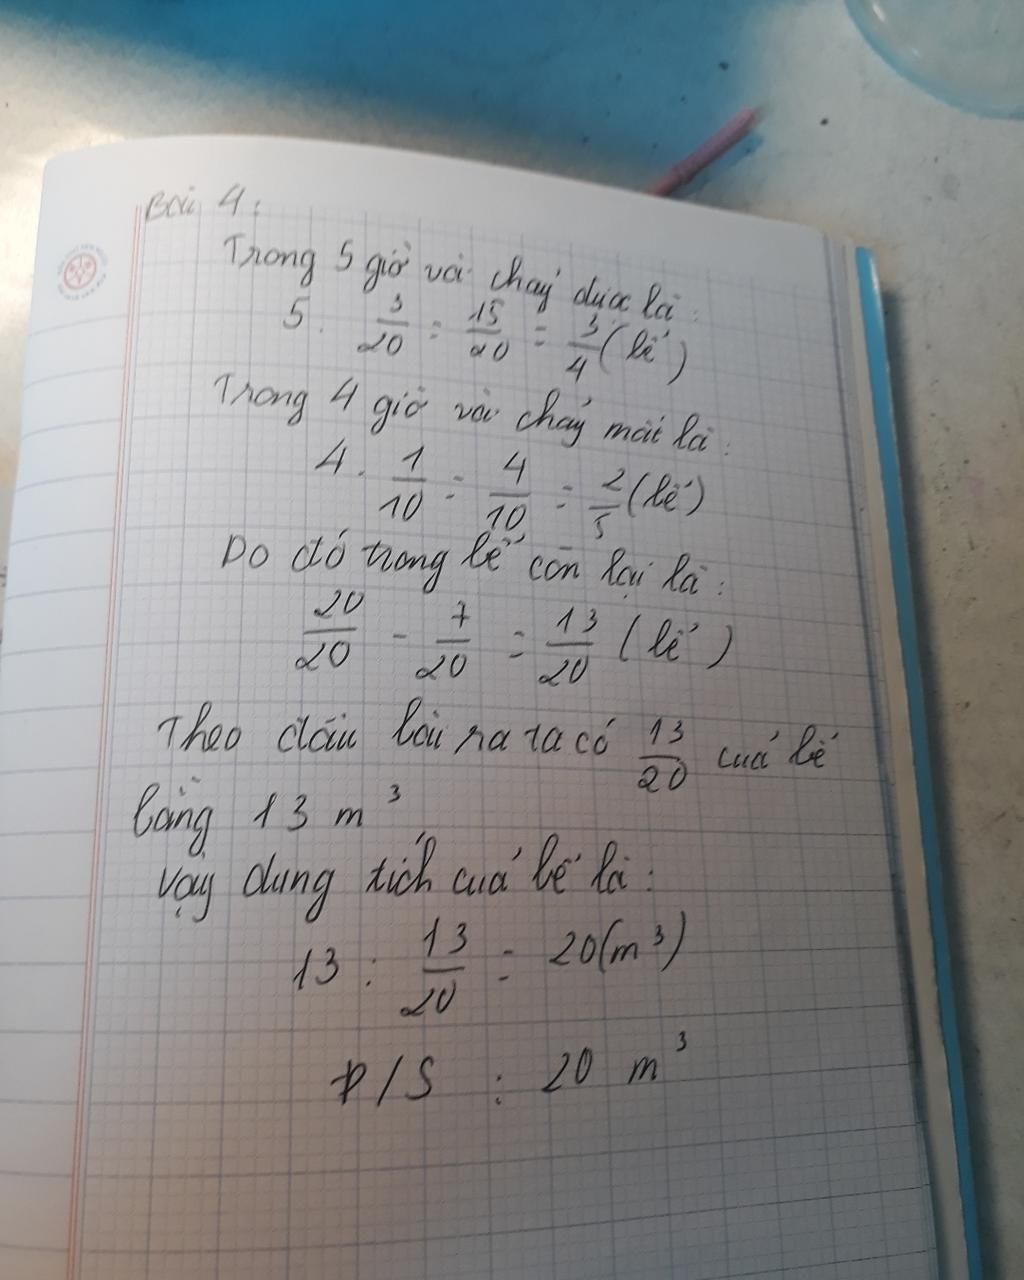 Bài 4:
Trong 5 giờ vòi chảy được là:
5 . 3/20 = 15/20 = 3/4 (bể)
Trong 4 giờ vòi chảy mất là:
4 . 1/10 = 4/10 = 2/5 (bể)
Do đó trong bể còn lại là:
20/20 - 7/20 = 13/20 (bể)
Theo đầu bài ra ta có 13/20 của bể
bằng 13 m³
Vậy dung tích của bể là:
13 : 13/20 = 20(m³)
Đ/S : 20 m³